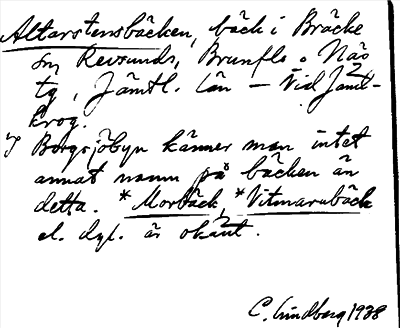 Altarstensbäcken, bäck i Bräcke
sn, Revsunds, Brunflo o Näs
tg, Jämtl. län – Vid Jämt-
krog.
I Borgsjöbyn känner man intet
annat namn på bäcken än
detta. *Morbäck, *Vitmarabäck
el. dyl. är okänt.
C. Lindberg 1938